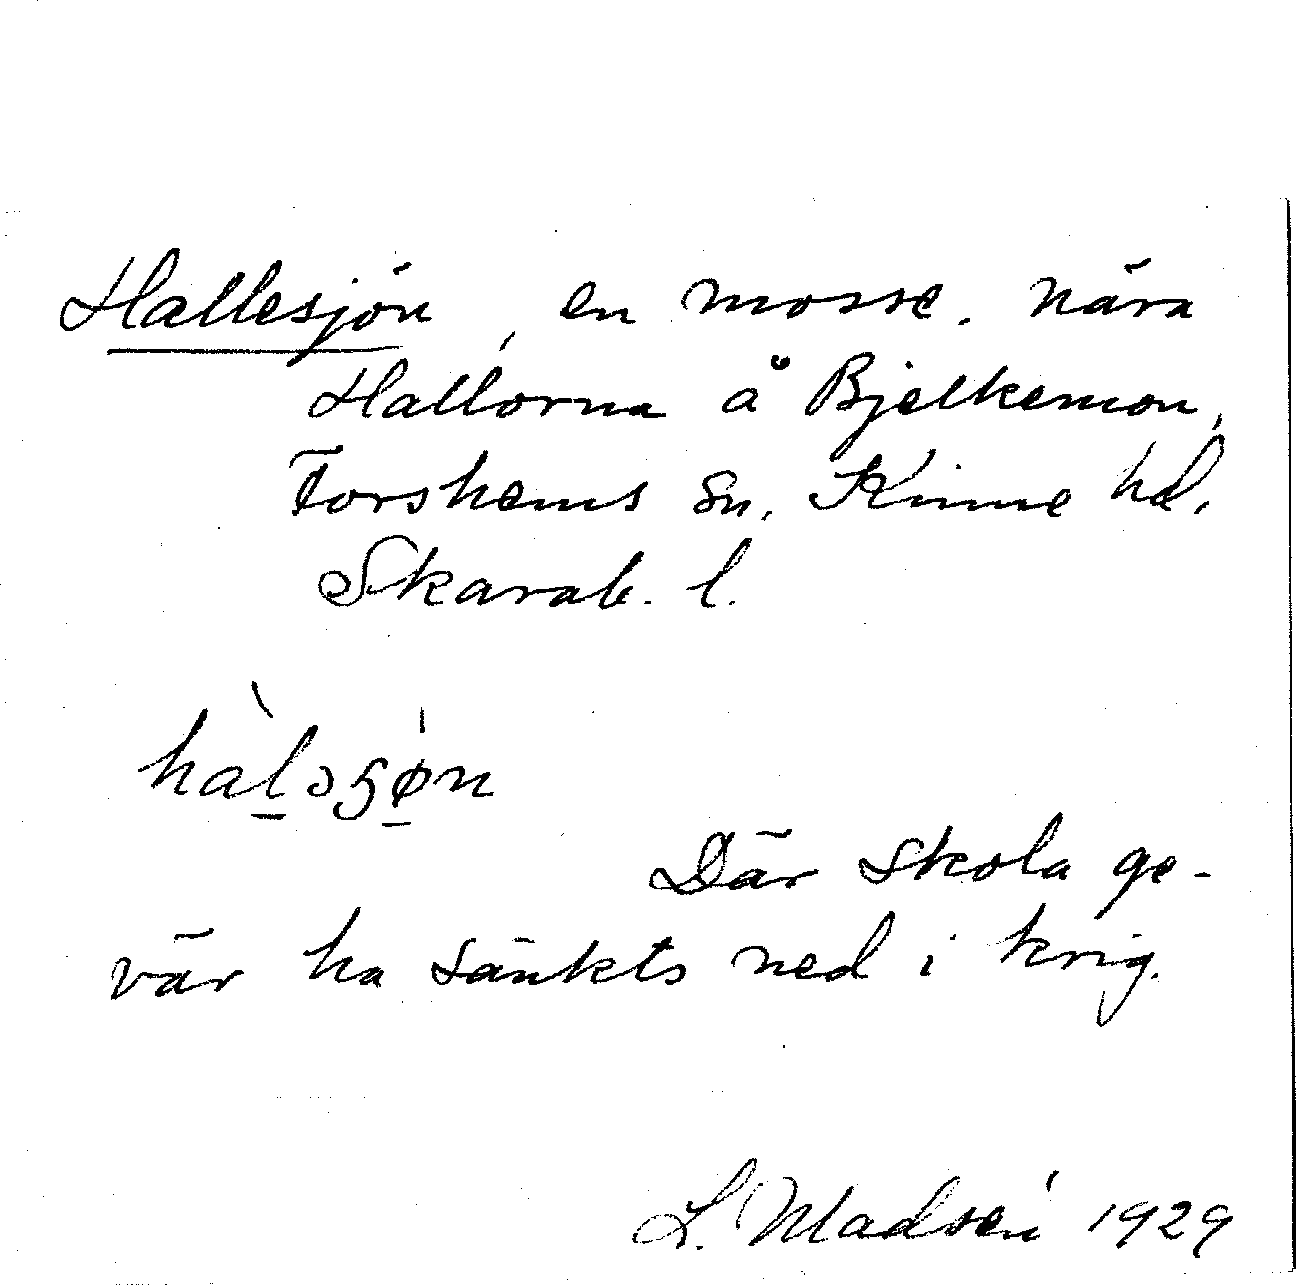 Hallesjön, en mosse. nära
Hallorna å Bjelkemon,
Forshems sn, Kinne hd,
Skarab. l.
hàl̠əʂø̠n
Där skola ge-
vär ha sänkts ned i krig.
L. Madsén 1929